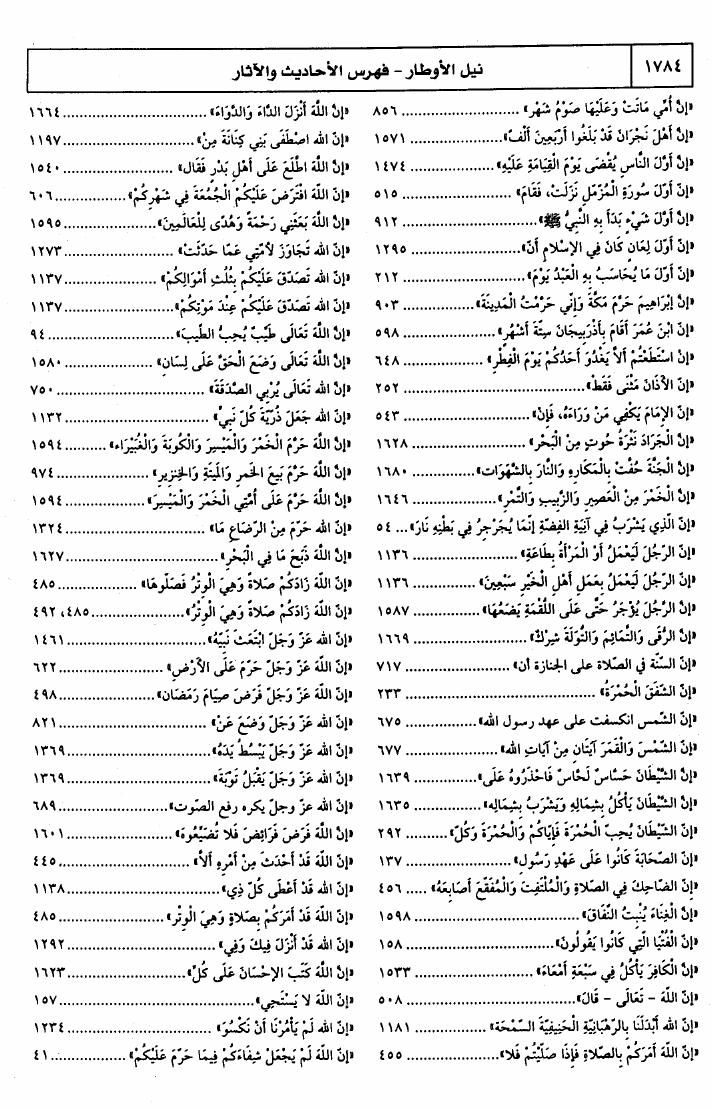 ١٧٨٤
نيل الأوطار - فهرس الأحاديث والآثار
«إنَّ أُمِّي مَاتَتْ وَعَلَيْهَا صَوْمُ شَهْرٍ» ........ ٨٥٦
«إنَّ أَهْلَ نَجْرَانَ قَدْ بَلَغُوا أَرْبَعِينَ أَلْفً» ........ ١٥٧١
«إنَّ أَوَّلَ النَّاسِ يُقْضَى يَوْمَ الْقِيَامَةِ عَلَيْهِ» ........ ١٤٧٤
«إنَّ أَوَّلَ سُورَةِ الْمُزَّمِّلِ نَزَلَتْ، فَقَامَ» ........ ٥١٥
«إنَّ أَوَّلَ شَيْءٍ بَدَأَ بِهِ النَّبِيُّ ﷺ» ........ ٩١٢
«إنَّ أَوَّلَ لِعَانٍ كَانَ فِي الإِسْلَامِ أَنَّ» ........ ١٢٩٥
«إنَّ أَوَّلَ مَا يُحَاسَبُ بِهِ الْعَبْدُ يَوْمَ» ........ ٢١٢
«إنَّ إبْرَاهِيمَ حَرَّمَ مَكَّةَ وَإِنِّي حَرَّمْتُ الْمَدِينَةَ» ........ ٩٠٣
«إنَّ ابْنَ عُمَرَ أَقَامَ بِأَذْرَبِيجَانَ سِتَّةَ أَشْهُرٍ» ........ ٥٩٨
«إنْ اسْتَطَعْتُمْ أَلاَّ يَغْدُوَ أَحَدُكُمْ يَوْمَ الْفِطْرِ» ........ ٦٤٨
«إنَّ الأَذَانَ مَثْنَى فَقَطْ» ........ ٢٥٢
«إنَّ الإِمَامَ يَكْفِي مَنْ وَرَاءَهُ، فَإِنْ» ........ ٥٤٣
«إنَّ الْجَرَادَ نَثْرَةُ حُوتٍ مِنْ الْبَحْرِ» ........ ١٦٢٨
«إنَّ الْجَنَّةَ حُفَّتْ بِالْمَكَارِهِ وَالنَّارَ بِالشَّهَوَاتِ» ........ ١٦٨٠
«إنَّ الْخَمْرَ مِنْ الْعَصِيرِ وَالزَّبِيبِ وَالتَّمْرِ» ........ ١٦٤٦
«إنَّ الَّذِي يَشْرَبُ فِي آنِيَةِ الْفِضَّةِ إِنَّمَا يُجَرْجِرُ فِي بَطْنِهِ نَارَ» ... ٥٤
«إنَّ الرَّجُلَ لَيَعْمَلُ أَوْ الْمَرْأَةُ بِطَاعَةِ» ........ ١١٣٦
«إنَّ الرَّجُلَ لَيَعْمَلُ بِعَمَلِ أَهْلِ الْخَيْرِ سَبْعِينَ» ........ ١١٣٦
«إنَّ الرَّجُلَ يُؤْجَرُ حَتَّى عَلَى اللُّقْمَةِ يَضَعُهَا» ........ ١٥٨٧
«إنَّ الرُّقَى وَالتَّمَائِمَ وَالتِّوَلَةَ شِرْكٌ» ........ ١٦٦٩
«إنَّ السنَّة في الصلاة على الجنازة أن» ........ ٧١٧
«إنَّ الشَّفَقَ الْحُمْرَةُ» ........ ٢٣٣
«إنَّ الشَّمس انكسفت على عهد رسول الله» ........ ٦٧٥
«إنَّ الشَّمْسَ وَالْقَمَرَ آيَتَانِ مِنْ آيَاتِ الله» ........ ٦٧٧
«إنَّ الشَّيْطَانَ حَسَّاسٌ لَحَّاسٌ فَاحْذَرُوهُ عَلَى» ........ ١٦٣٩
«إنَّ الشَّيْطَانَ يَأْكُلُ بِشِمَالِهِ وَيَشْرَبُ بِشِمَالِهِ» ........ ١٦٣٥
«إنَّ الشَّيْطَانَ يُحِبُّ الْحُمْرَةَ فَإِيَّاكُمْ وَالْحُمْرَةَ وَكُلَّ» ........ ٢٩٢
«إنَّ الصَّحَابَةَ كَانُوا عَلَى عَهْدِ رَسُولِ» ........ ١٣٧
«إنَّ الضاحِكَ فِي الصَّلاةِ وَالْمُلْتَفِتَ وَالْمُفَقِّعَ أَصَابِعَهُ» ..... ٤٥٦
«إنَّ الْغِنَاءَ يُنْبِتُ النِّفَاقَ» ........ ١٥٩٨
«إنَّ الْفُتْيَا الَّتِي كَانُوا يَقُولُونَ» ........ ١٥٨
«إنَّ الْكَافِرَ يَأْكُلُ فِي سَبْعَةِ أَمْعَاءَ» ........ ١٥٣٣
«إنَّ اللهَ - تَعَالَى - قَالَ» ........ ٥٠٨
«إنَّ الله أَبْدَلَنَا بِالرَّهْبَانِيَّةِ الْحَنِيفِيَّةَ السَّمْحَةَ» ........ ١١٨١
«إنَّ اللهَ أَمَرَكُمْ بِالصَّلاةِ فَإِذَا صَلَّيْتُمْ فَلا» ........ ٤٥٥
«إنَّ اللهَ أَنْزَلَ الدَّاءَ وَالدَّوَاءَ» ........ ١٦٦٤
«إنَّ الله اصْطَفَى بَنِي كِنَانَةَ مِنْ» ........ ١١٩٧
«إنَّ اللهَ اطَّلَعَ عَلَى أَهْلِ بَدْرٍ فَقَالَ» ........ ١٥٤٠
«إنَّ اللهَ افْتَرَضَ عَلَيْكُمْ الْجُمُعَةَ فِي شَهْرِكُمْ» ........ ٦٠٦
«إنَّ اللهَ بَعَثَنِي رَحْمَةً وَهُدًى لِلْعَالَمِينَ» ........ ١٥٩٥
«إنَّ الله تَجَاوَزَ لأُمَّتِي عَمَّا حَدَّثَتْ» ........ ١٢٧٣
«إنَّ الله تَصَدَّقَ عَلَيْكُمْ بِثُلُثِ أَمْوَالِكُمْ» ........ ١١٣٧
«إنَّ الله تَصَدَّقَ عَلَيْكُمْ عِنْدَ مَوْتِكُمْ» ........ ١١٣٧
«إنَّ اللهَ تَعَالَى طَيِّبٌ يُحِبُّ الطَّيِّبَ» ........ ٩٤
«إنَّ اللهَ تَعَالَى وَضَعَ الْحَقَّ عَلَى لِسَانِ» ........ ١٥٨٠
«إنَّ الله تَعَالَى يُرْبِي الصَّدَقَةَ» ........ ٧٥٠
«إنَّ الله جَعَلَ ذُرِّيَّةَ كُلِّ نَبِيٍّ» ........ ١١٣٢
«إنَّ اللهَ حَرَّمَ الْخَمْرَ وَالْمَيْسِرَ وَالْكُوبَةَ وَالْغُبَيْرَاءَ» ........ ١٥٩٤
«إنَّ اللهَ حَرَّمَ بَيْعَ الخَمرِ وَالمَيتَةِ وَالخِنزِيرِ» ........ ٩٧٤
«إنَّ اللهَ حَرَّمَ عَلَى أُمَّتِي الْخَمْرَ وَالْمَيْسِرَ» ........ ١٥٩٤
«إنَّ الله حَرَّمَ مِنْ الرَّضَاعِ مَا» ........ ١٣٢٤
«إنَّ اللهَ ذَبَحَ مَا فِي الْبَحْرِ» ........ ١٦٢٧
«إنَّ اللهَ زَادَكُمْ صَلاةً وَهِيَ الْوِتْرُ فَصَلُّوهَا» ........ ٤٨٥
«إنَّ اللهَ زَادَكُمْ صَلاةً وَهِيَ الْوِتْرُ» ........ ٤٨٥، ٤٩٢
«إنَّ الله عَزَّ وَجَلَّ ابْتَعَثَ نَبِيَّهُ» ........ ١٤٦١
«إنَّ اللهَ عَزَّ وَجَلَّ حَرَّمَ عَلَى الأَرْضِ» ........ ٦٢٢
«إنَّ اللهَ عَزَّ وَجَلَّ فَرَضَ صِيَامَ رَمَضَان» ........ ٤٩٨
«إنَّ الله عَزَّ وَجَلَّ وَضَعَ عَنْ» ........ ٨٢١
«إنَّ الله عَزَّ وَجَلَّ يَبْسُطُ يَدَهُ» ........ ١٣٦٩
«إنَّ الله عَزَّ وَجَلَّ يَقْبَلُ تَوْبَةَ» ........ ١٣٦٩
«إنَّ الله عزَّ وجلَّ يكره رفع الصوت» ........ ٦٨٩
«إنَّ اللهَ فَرَضَ فَرَائِضَ فَلا تُضَيِّعُوهَ» ........ ١٦٠١
«إنَّ اللهَ قَدْ أَحْدَثَ مِنْ أَمْرِهِ أَلاَّ» ........ ٤٤٥
«إنَّ الله قَدْ أَعْطَى كُلَّ ذِي» ........ ١١٣٨
«إنَّ اللهَ قَدْ أَمَرَكُمْ بِصَلاةٍ وَهِيَ الْوِتْرِ» ........ ٤٨٥
«إنَّ الله قَدْ أَنْزَلَ فِيكَ وَفِي» ........ ١٢٩٢
«إنَّ اللهَ كَتَبَ الإِحْسَانَ عَلَى كُلِّ» ........ ١٦٢٣
«إنَّ اللهَ لا يَسْتَحِي» ........ ١٥٧
«إنَّ الله لَمْ يَأْمُرْنَا أَنْ نَكْسُوَ» ........ ١٢٣٤
«إنَّ اللهَ لَمْ يَجْعَلْ شِفَاءَكُمْ فِيمَا حَرَّمَ عَلَيْكُمْ» ........ ٤١